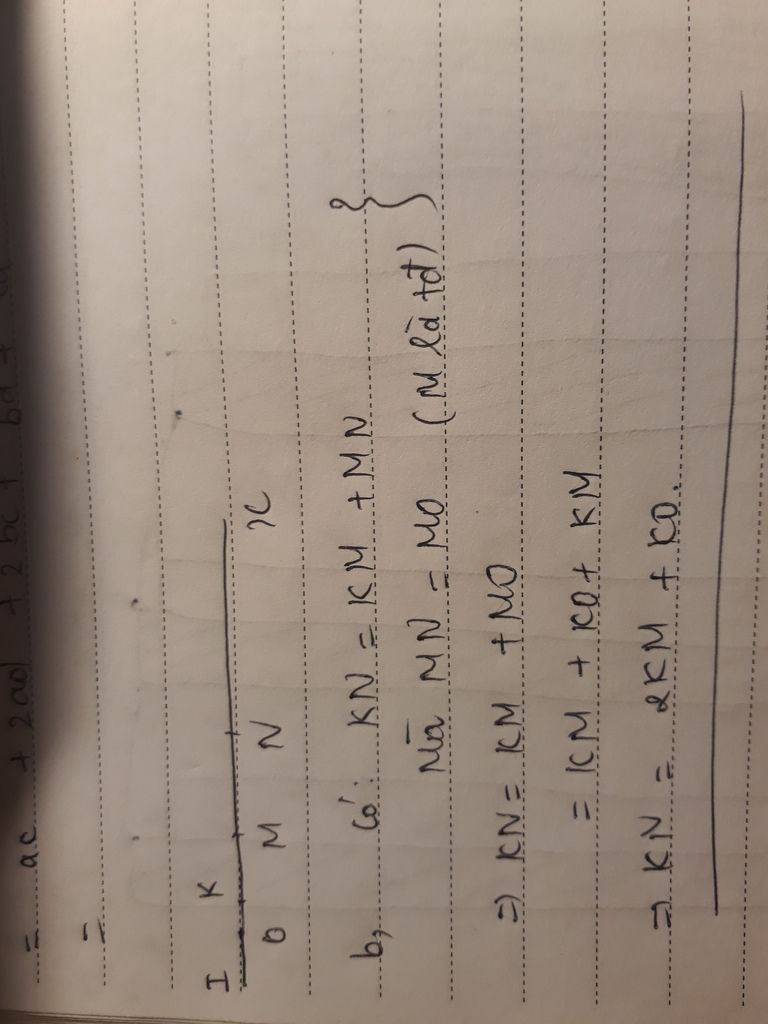 = ac + 2ad + 2bc + bd +
=
I K
O M N x
b, Có: KN = KM + MN }
Mà MN = MO (M là tđ)
=) KN = KM + MO
= KM + KO + KM
=) KN = 2KM + KO.